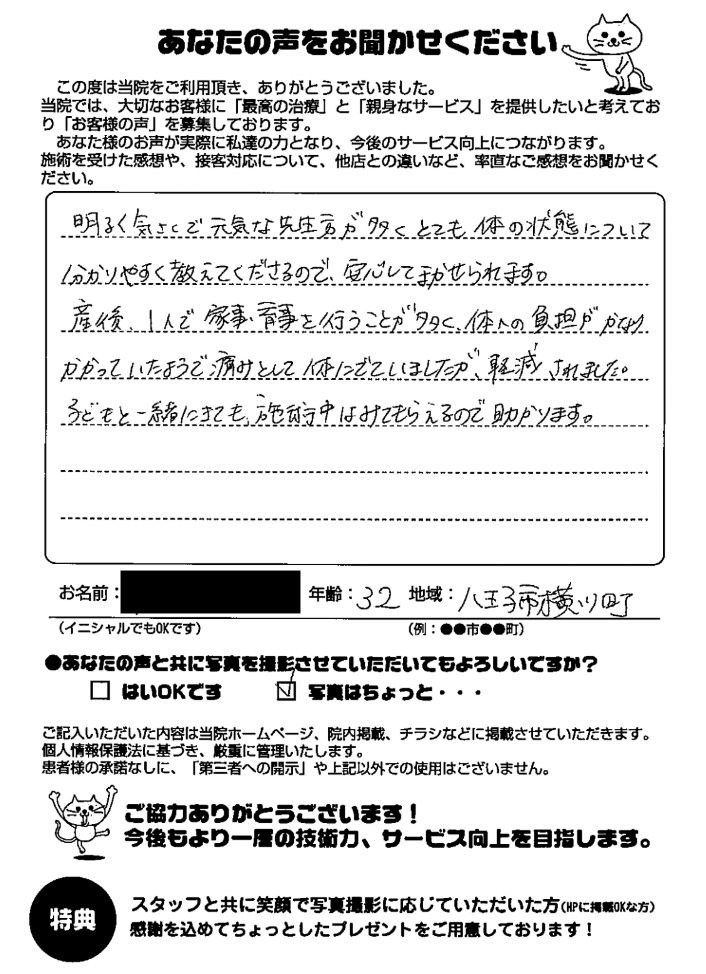 あなたの声をお聞かせください
この度は当院をご利用頂き、ありがとうございました。
当院では、大切なお客様に「最高の治療」と「親身なサービス」を提供したいと考えてお
り「お客様の声」を募集しております。
あなた様のお声が実際に私達の力となり、今後のサービス向上につながります。
施術を受けた感想や、接客対応について、他店との違いなど、率直なご感想をお聞かせく
ださい。
明るく気さくで元気な先生方が多くとても体の状態について
分かりやすく教えてくださるので、安心してまかせられます。
産後、1人で家事、育事を行うことが多く、体への負担がかなり
かかっていたようで痛みとして体にでていましたが、軽減されました。
子どもと一緒にきても、施術中はみてもらえるので助かります。
お名前： 年齢：32 地域：八王子市横川町
（イニシャルでもOKです） （例：●●市●●町）
●あなたの声と共に写真を撮影させていただいてもよろしいですか？
□ はいOKです ☑ 写真はちょっと・・・
ご記入いただいた内容は当院ホームページ、院内掲載、チラシなどに掲載させていただきます。
個人情報保護法に基づき、厳重に管理いたします。
患者様の承諾なしに、「第三者への開示」や上記以外での使用はございません。
ご協力ありがとうございます！
今後もより一層の技術力、サービス向上を目指します。
特典
スタッフと共に笑顔で写真撮影に応じていただいた方(HPに掲載OKな方)
感謝を込めてちょっとしたプレゼントをご用意しております！